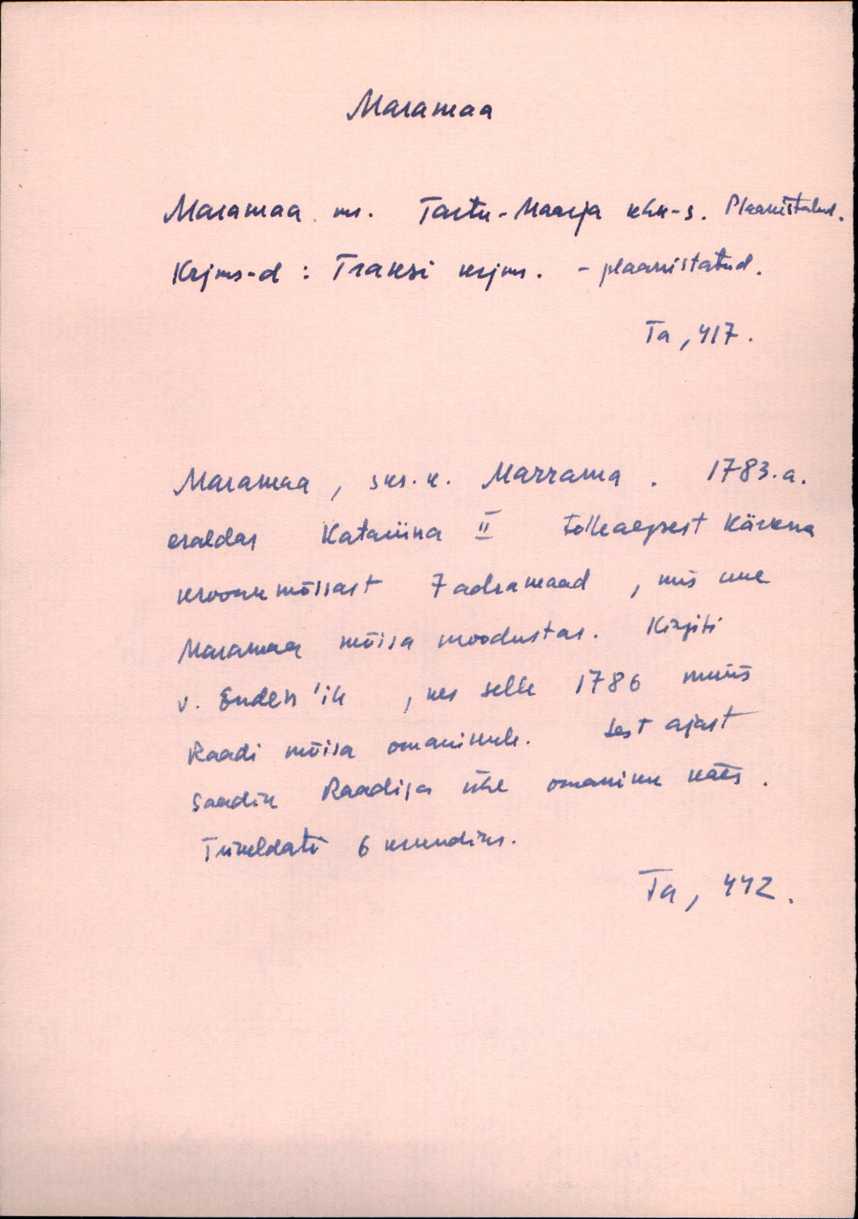 Maramaa
Maramaa ms. Tartu-Maarja khk-s. Plaanistatud.
Krjms-d : Traksi krjm. - plaanistatud.
Ta, 417.
Maramaa, sks.k. Marrama. 1783.a.
eraldas Katariina II tolleaegsest Kärkna
kroonumõisast 7 adramaad, mis uue
Maramaa mõisa moodustas. Kingiti
v. Enden'ile, kes selle 1786 müüs
Raadi mõisa omanikule. Sest ajast
saadik Raadiga ühe omaniku käes.
Tükeldati 6 krundiks.
Ta, 442.